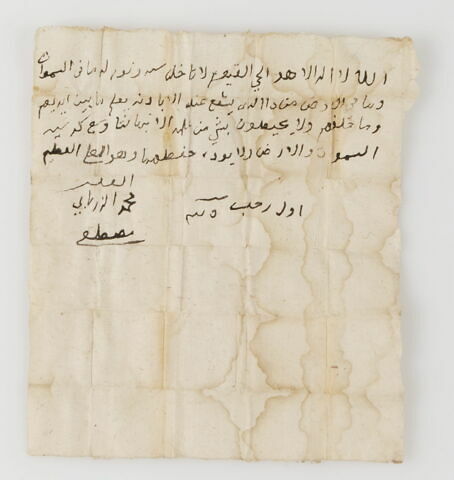 الله لا اله الا هو الحي القيوم لا تاخذه سنه ولا نوم له ما في السموات
وما في الارض من ذا الذي يشفع عنده الا باذنه يعلم ما بين ايديهم
وما خلفهم ولا يحيطون بشي من علمه الا بما شا وسع كرسيه
السموات والارض ولا يوده حفظهما وهو العلي العظيم
محمد
اول رجب